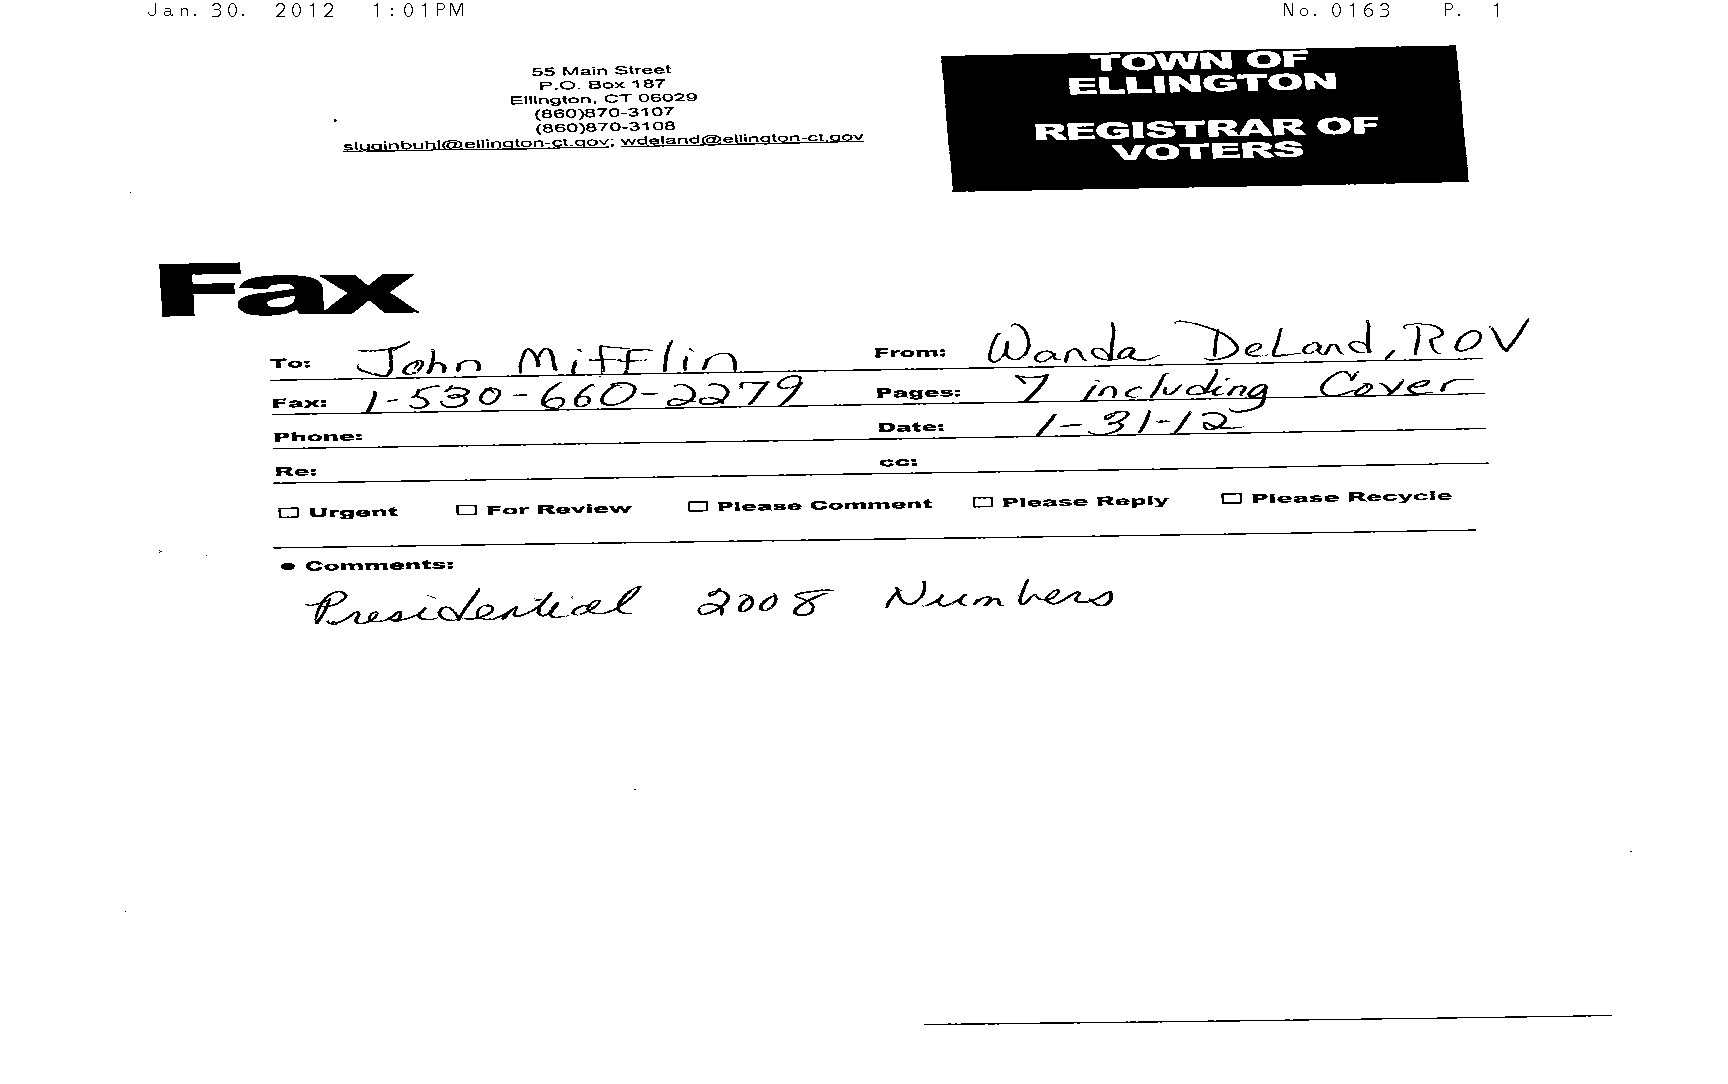 Jan. 30. 2012 1:01PM No. 0163 P. 1
55 Main Street
P.O. Box 187
Ellington, CT 06029
(860)870-3107
(860)870-3108
sluginbuhl@ellington-ct.gov; wdeland@ellington-ct.gov
TOWN OF
ELLINGTON
REGISTRAR OF
VOTERS
Fax
To: John Mifflin From: Wanda DeLand, ROV
Fax: 1-530-660-2279 Pages: 7 including Cover
Phone: Date: 1-31-12
Re: cc:
☐ Urgent ☐ For Review ☐ Please Comment ☐ Please Reply ☐ Please Recycle
● Comments:
Presidential 2008 Numbers